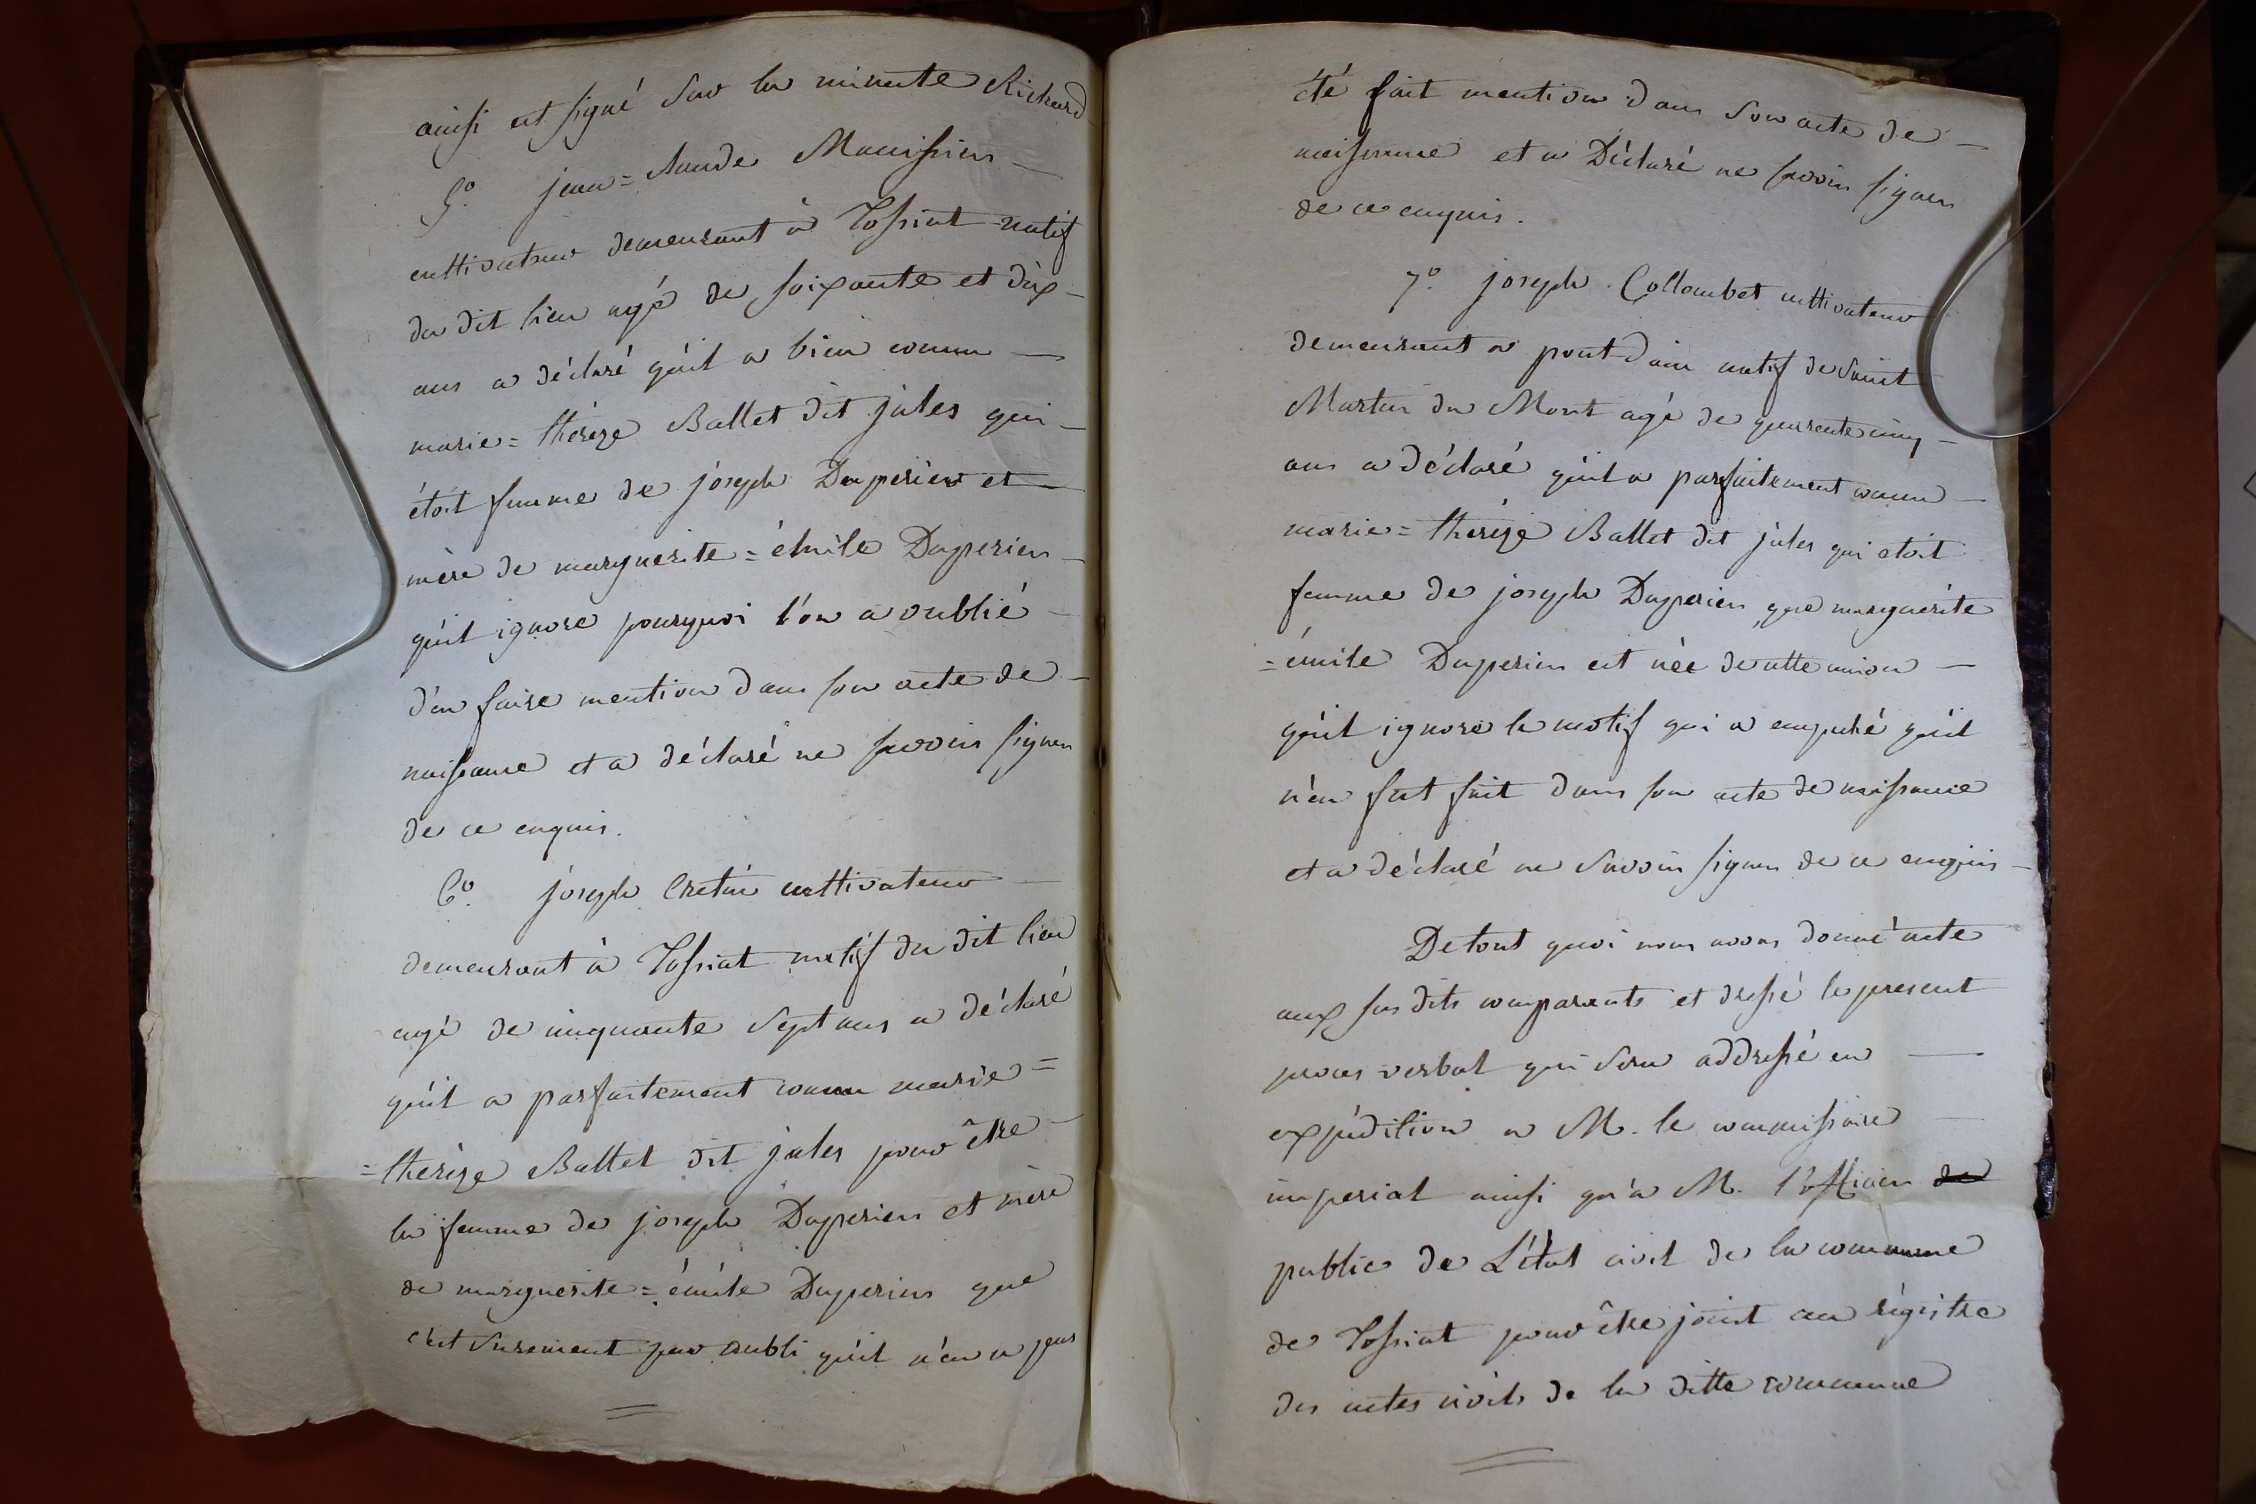 ainsi est signé sur la minute Richard
5o. jean=claude Manissien
cultivateur demeurant à Tossiat natif
du dit lieu agé de soixante et dix
ans a déclaré qu'il a bien connu
marie=thérèze Ballet dit jules qui
étoit femme de joseph Duperier et
mère de marguerite=émile Duperier
qu'il ignore pourquoi l'on a oublié
d'en faire mention dans son acte de
naissance et a déclaré ne savoir signer
de ce enquis.
6o. joseph Cretin cultivateur
demeurant à Tossiat natif du dit lieu
agé de cinquante sept ans a déclaré
qu'il a parfaitement connu marie=
=thérèze Ballet dit jules pour être
la femme de joseph Duperier et mère
de marguerite=émile Duperier que
c'est surement par oubli qu'il n'en a pas
été fait mention dans son acte de
naissance et a Déclaré ne savoir signer
de ce enquis.
7o. joseph Collombet cultivateur
demeurant a pont-d'ain natif de Saint
Martin du Mont agé de quarente cinq
ans a déclaré qu'il a parfaitement connu
marie=thérèze Ballet dit jules qui etoit
femme de joseph Duperier, que marguerite
=émile Duperier est née de cette union
qu'il ignore le motif qui a empêché qu'il
n'en fut fait dans son acte de naissance
et a déclaré ne savoir signer de ce enquis
De tout quoi nous avons donné acte
aux sus dits comparants et dressé le present
proces verbal qui sera addressé en
expédition a M. le commissaire
imperial ainsi qu'a M. l'officier de
public de L'état civil de la commune
de Tossiat pour être joint au régistre
des actes civils de la ditte commune